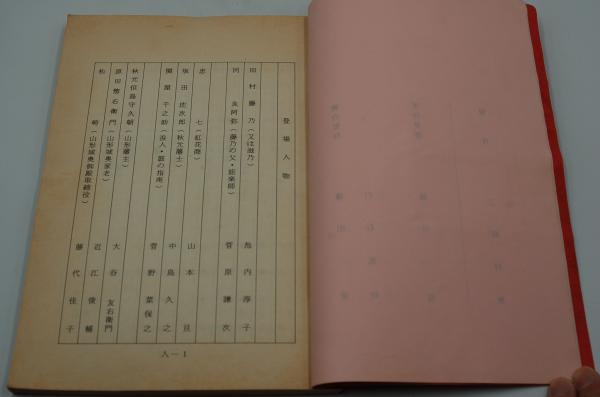 登場人物
田村藤乃(又は滋乃) 池内淳子
同良阿弥(藤乃の父・能楽師) 菅原謙次
忠七(紅花商) 山本亘
坂田庄次郎(秋元藩士) 中島久之
関屋千之助(浪人・鼓の指南) 菅野菜保之
秋元但馬守久朝(山形藩主)
原田惣右衛門(山形城奥家老) 大谷友右衛門
松崎(山形城奥御殿取締役) 近江俊輔
藤代佳子
人―1